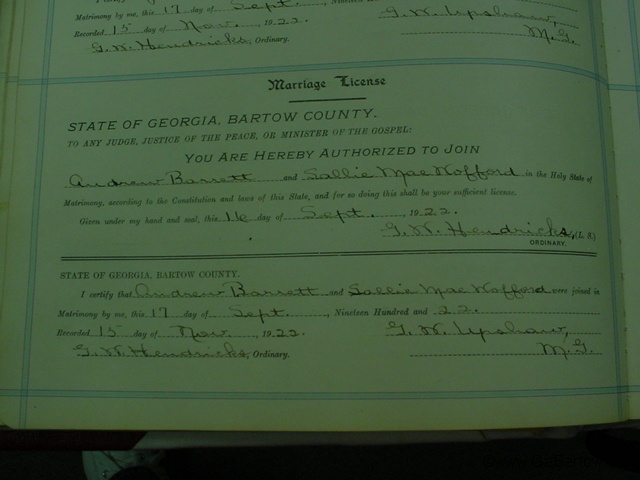 Matrimony by me, this 17 day of Sept., Nineteen
Recorded 15 day of Nov., 1922. G. W. Upshaw,
G. W. Hendricks, Ordinary. M. G.
Marriage License
STATE OF GEORGIA, BARTOW COUNTY.
TO ANY JUDGE, JUSTICE OF THE PEACE, OR MINISTER OF THE GOSPEL:
YOU ARE HEREBY AUTHORIZED TO JOIN
Andrew Barrett and Sallie Mae Wofford in the Holy State of
Matrimony, according to the Constitution and laws of this State, and for so doing this shall be your sufficient license.
Given under my hand and seal, this 16 day of Sept., 1922.
G. W. Hendricks, (L. S.)
ORDINARY.
STATE OF GEORGIA, BARTOW COUNTY.
I certify that Andrew Barrett and Sallie Mae Wofford were joined in
Matrimony by me, this 17 day of Sept., Nineteen Hundred and 22.
Recorded 15 day of Nov., 1922. G. W. Upshaw,
G. W. Hendricks, Ordinary. M. G.